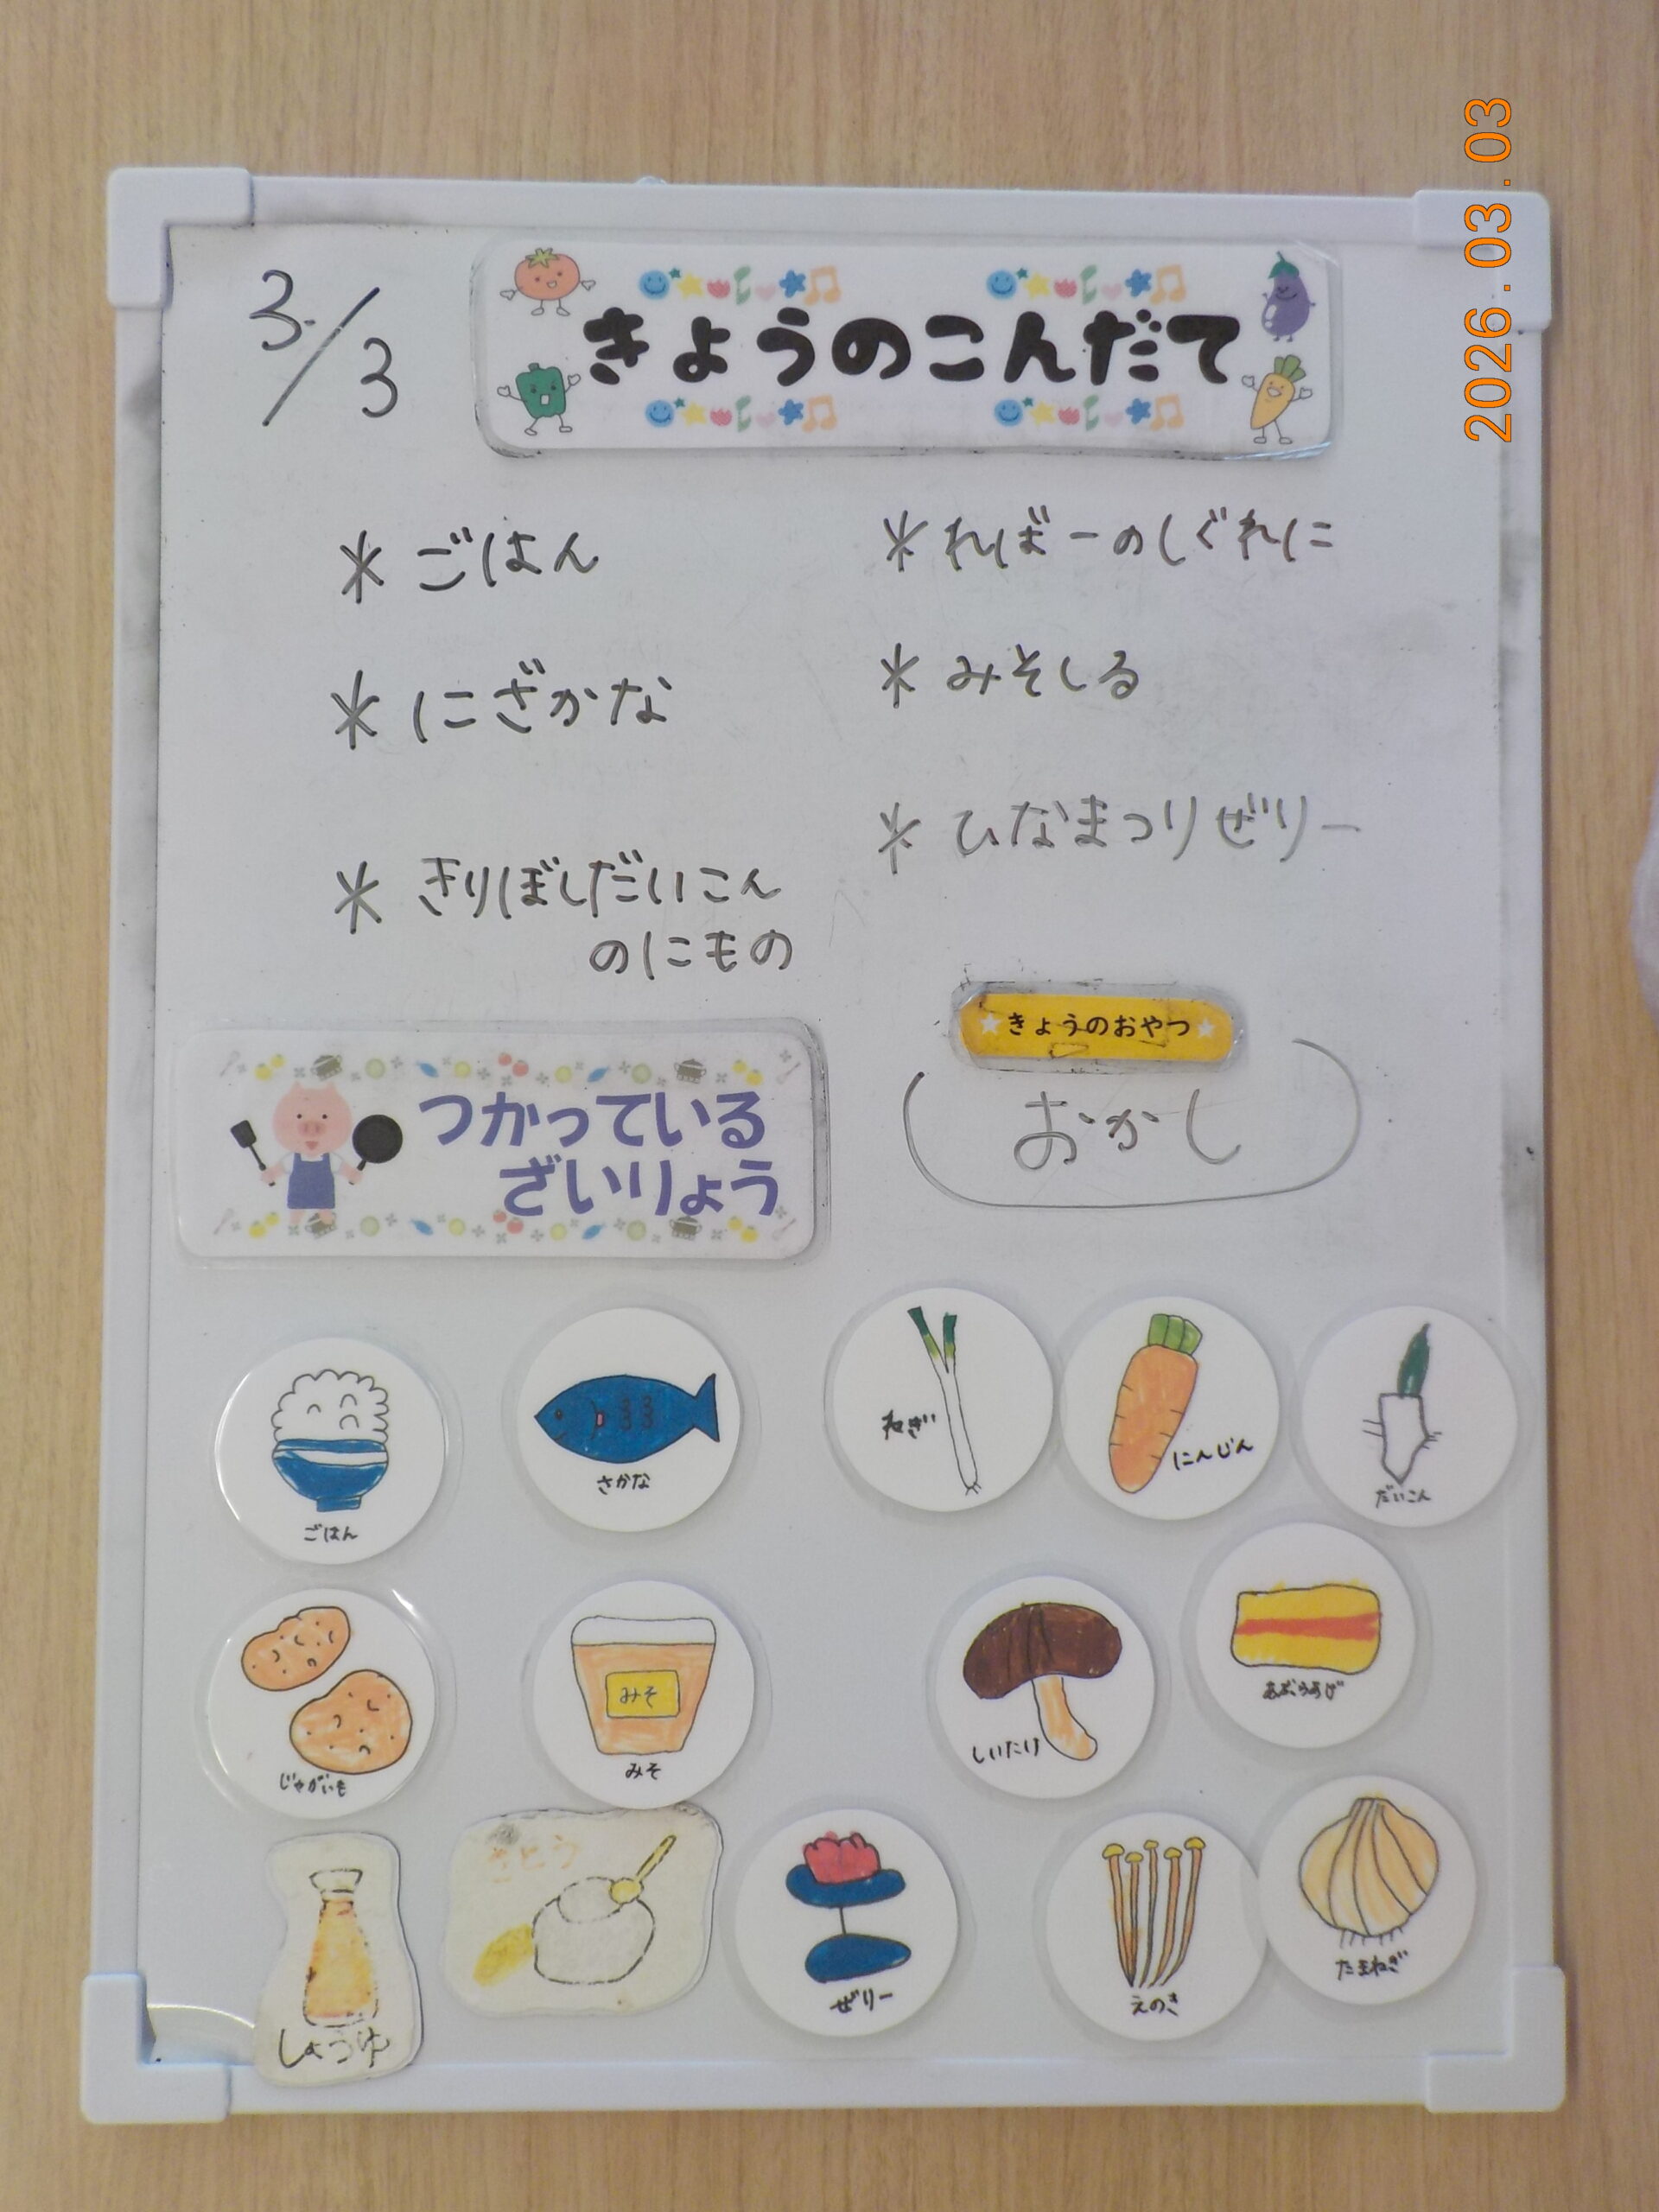 2026.03.03
3/3
きょうのこんだて
* ごはん
* にざかな
* きりぼしだいこん
のにもの
* ればーのしぐれに
* みそしる
* ひなまつりぜりー
★きょうのおやつ★
おかし
つかっている
ざいりょう
ごはん
さかな
ねぎ
にんじん
だいこん
じゃがいも
みそ
みそ
しいたけ
あぶらあげ
しょうゆ
さとう
ぜりー
えのき
たまねぎ